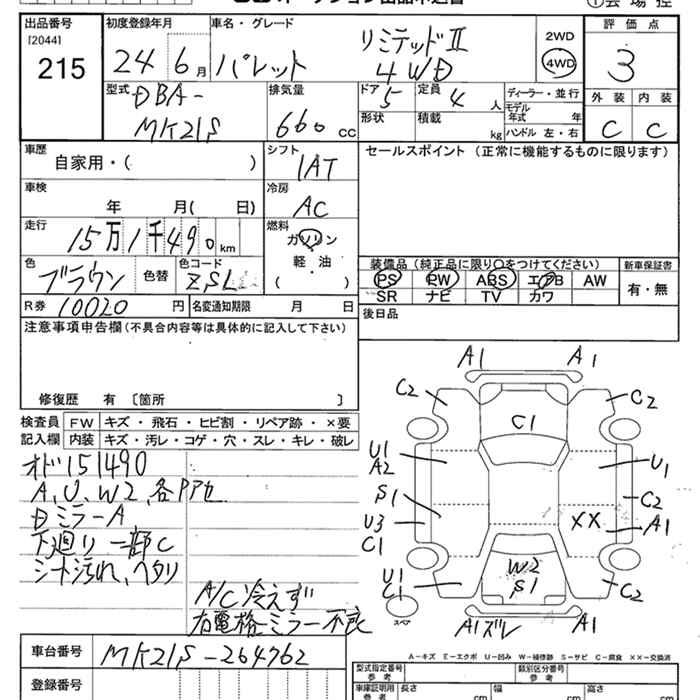 出品番号
[2044]
215
初度登録年月
24年6月
車名・グレード
パレット
リミテッドⅡ
4WD
2WD
4WD
評価点
3
型式
DBA-
MK21S
排気量
660 CC
ドア
5
定員
4人
形状
積載
kg
ディーラー・並行
モデル年式 年
ハンドル 左・右
外装
内装
C
C
車歴
自家用・( )
シフト
IAT
セールスポイント (正常に機能するものに限ります)
車検
年 月( 日)
冷房
AC
走行
15万1千490km
燃料
ガソリン
軽・油
( )
色
ブラウン
色替
色コード
ZSL
装備品(純正品に限り○をつけてください)
PS PW ABS エアB AW
SR ナビ TV カワ
新車保証書
有・無
R券
10020円
名変通知期限 月 日
後日品
注意事項申告欄(不具合内容等は具体的に記入して下さい)
修復歴 有〔箇所 〕
検査員
記入欄
FW キズ・飛石・ヒビ割・リペア跡・×要
内装 キズ・汚レ・コゲ・穴・スレ・キレ・破レ
オド151490
A、U、W2、各PP他
DミラーA
下廻り一部C
シート汚れ、ヘタリ
A/C冷えず
右電格ミラー不良
A1 A1
C2 C2
C1
U1
A2
U1
S1
C2
U3
XX
A1
C1
W2
S1
U1
C1
C2
スペア
A1ズレ
A1
A-キズ E-エクボ U-凹み W-補修跡 S-サビ C-腐食 ××-交換済
車台番号
MK21S-264762
登録番号
型式指定番号
参考
類別区分番号
参考
車庫証明用
参考
長さ cm
幅 cm
高さ cm